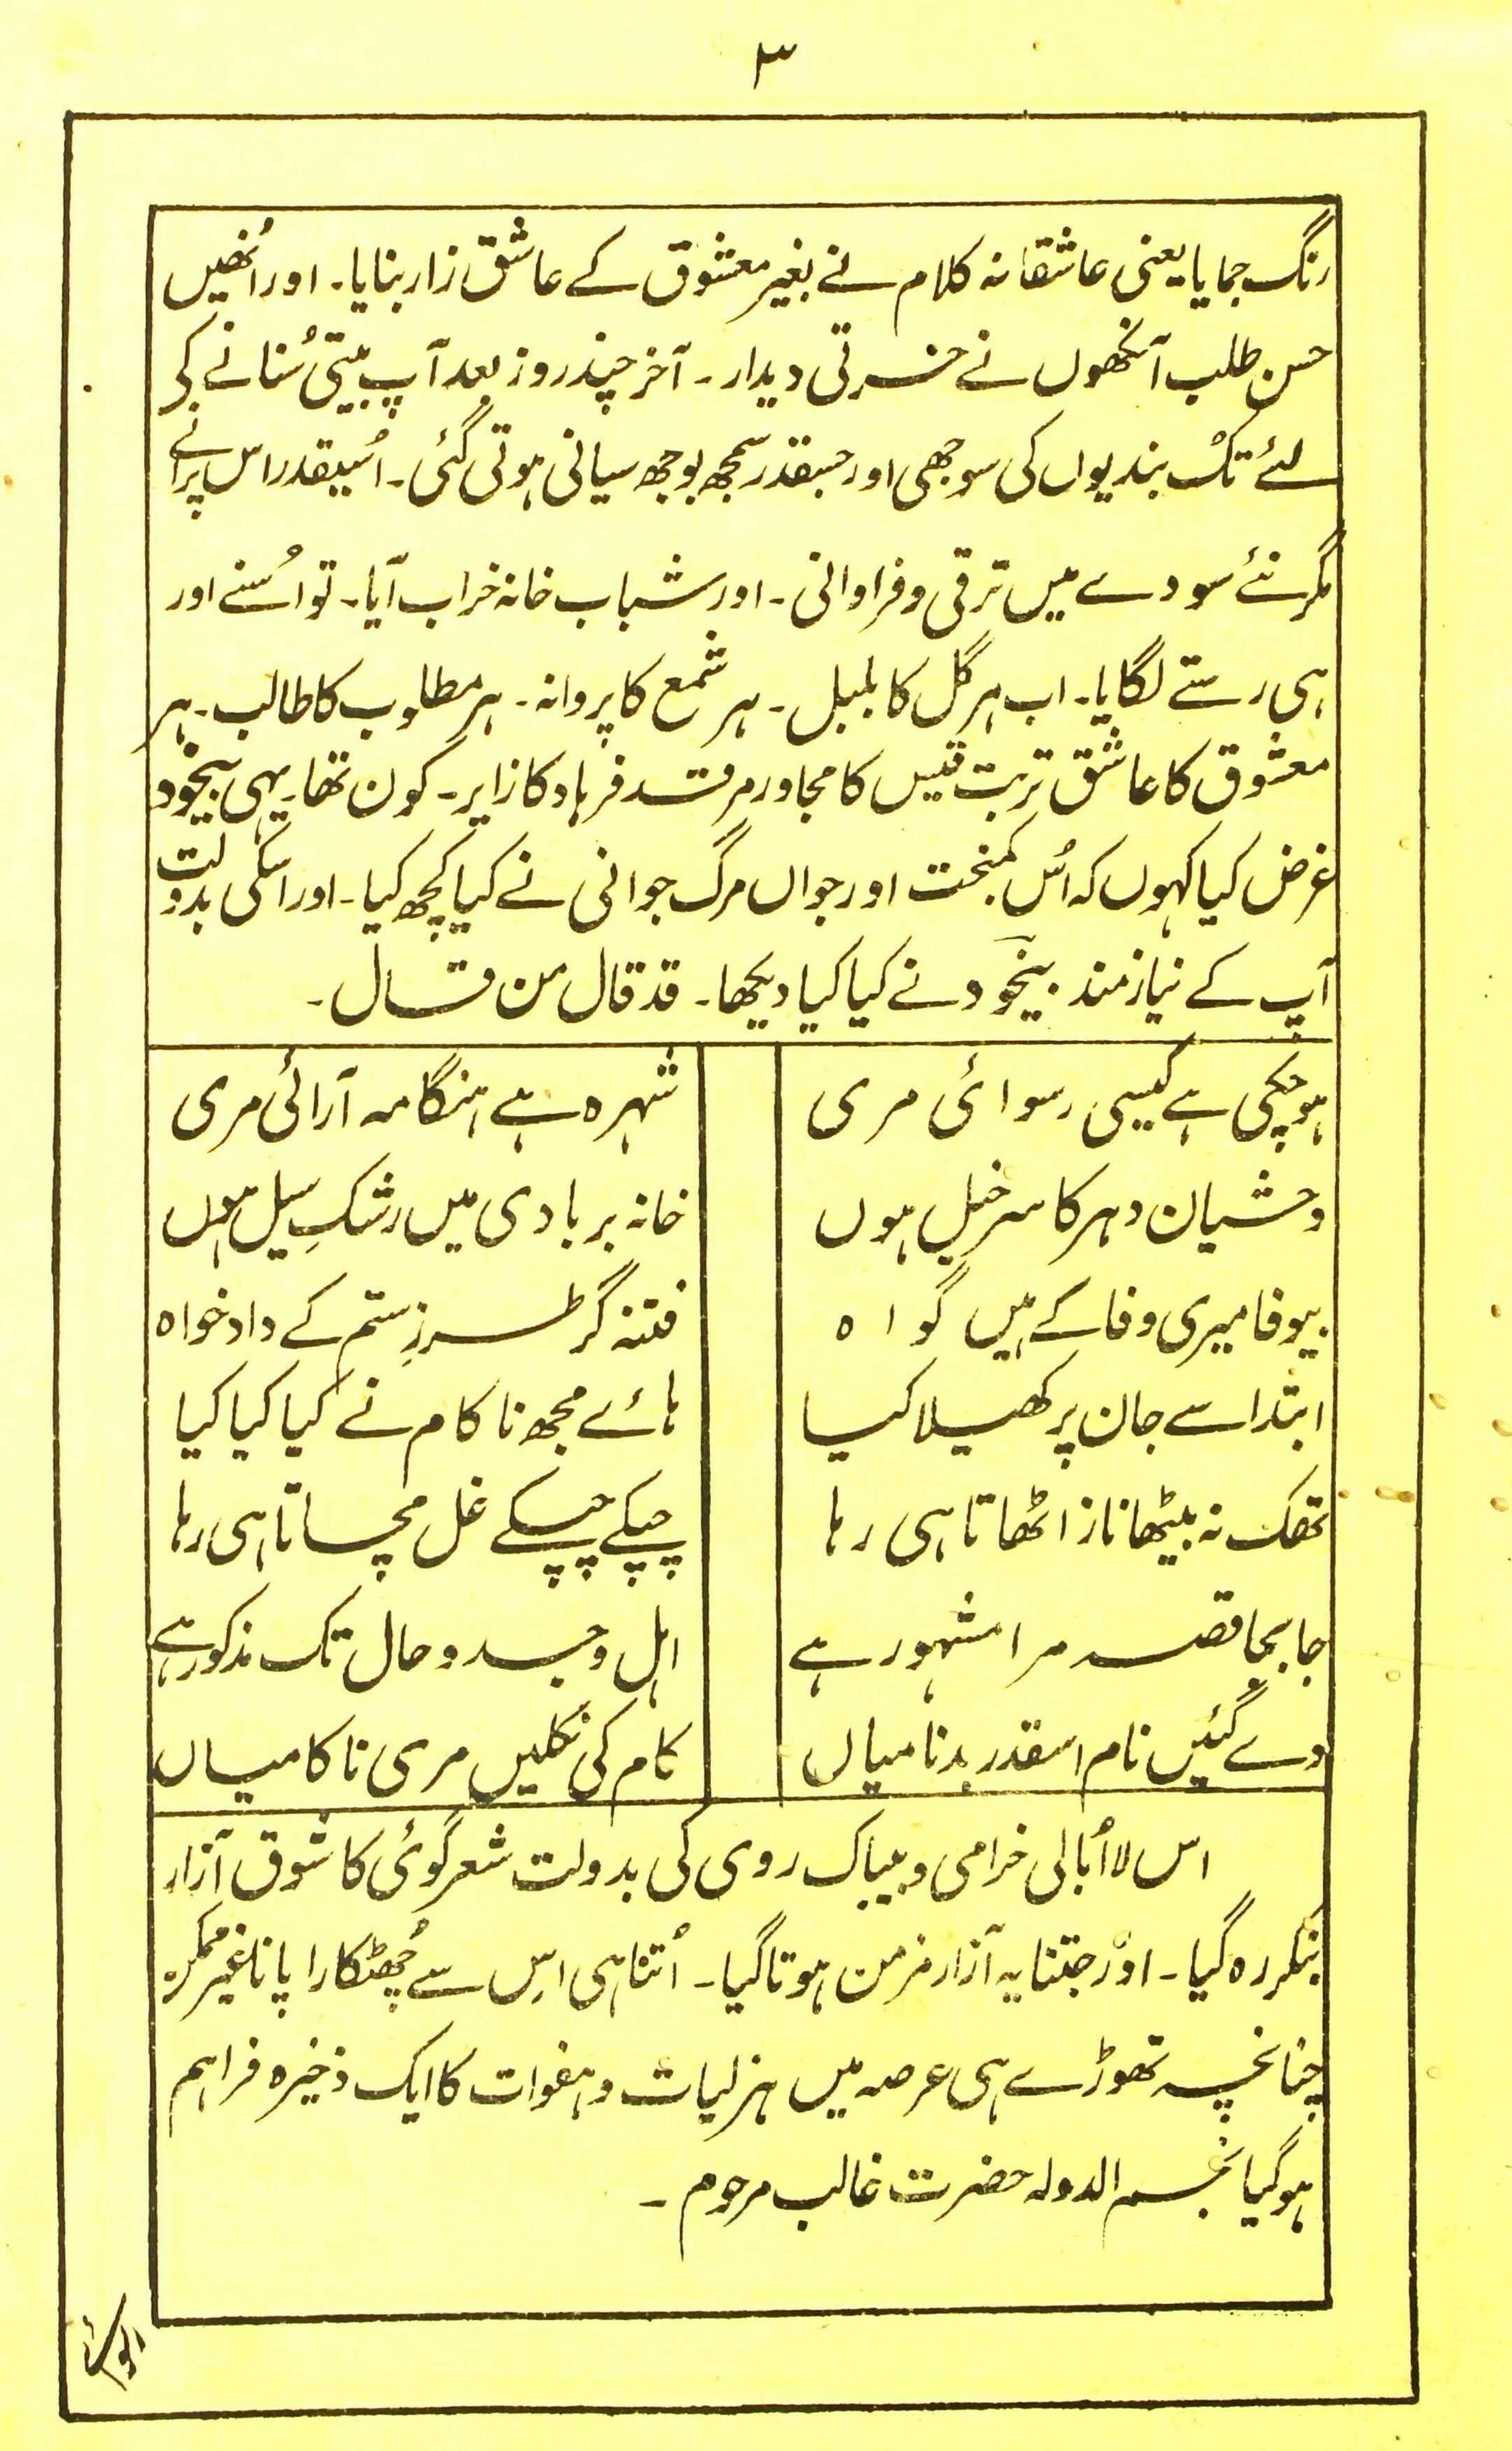 ۳
رنگ جمایا یعنی عاشقانہ کلام نے بغیر معشوق کے عاشق زار بنایا۔ اور اُنھیں
حسن طلب آنکھوں نے حسرتی دیدار۔ آخر چند روز بعد آپ بیتی سُنانے کی
لئے تُک بندیوں کی سوجھی اور جسقدر سمجھ بوجھ سیانی ہوتی گئی۔ اُسیقدر اس پرانے
مگر نئے سودے میں ترقی و فراوانی۔ اور شباب خانہ خراب آیا۔ تو اُسنے اور
ہی رستے لگایا۔ اب ہر گل کا بلبل۔ ہر شمع کا پروانہ۔ ہر مطلوب کا طالب۔ ہر
معشوق کا عاشق تربت قیس کا مجاور مرقد فرہاد کا زایر۔ کون تھا۔ یہی بیخود
غرض کیا کہوں کہ اُس کمبخت اور جواں مرگ جوانی نے کیا کچھ کیا۔ اور اسکی بدولت
آپ کے نیازمند بیخود نے کیا کیا دیکھا۔ قد قال من قال۔
ہو چکی ہے کیسی رسوائی مری شہرہ ہے ہنگامہ آرائی مری
وحشیان دہر کا سرخیل ہوں خانہ بربادی میں رشکِ سیل ہوں
بیوفا میری وفا کے ہیں گواہ فتنہ گر طرزِ ستم کے دادخواہ
ابتدا سے جان پر کھیلا کیا ہائے مجھ ناکام نے کیا کیا کیا
تھک نہ بیٹھا ناز اٹھاتا ہی رہا چپکے چپکے غل مچاتا ہی رہا
جا بجا قصہ مرا مشہور ہے اہل وجد و حال تک مذکور ہے
دے گئیں نام اسقدر بدنامیاں کام کی نکلیں مری ناکامیاں
اس لا اُبالی خرامی و بیباک روی کی بدولت شعر گوئی کا شوق آزار
بنکر رہ گیا۔ اور جتنا یہ آزار مزمن ہوتا گیا۔ اُتنا ہی اِس سے چُھٹکارا پانا غیر ممکن
چنانچہ تھوڑے ہی عرصہ میں ہزلیات و ہفوات کا ایک ذخیرہ فراہم
ہو گیا نجم الدولہ حضرت غالب مرحوم۔